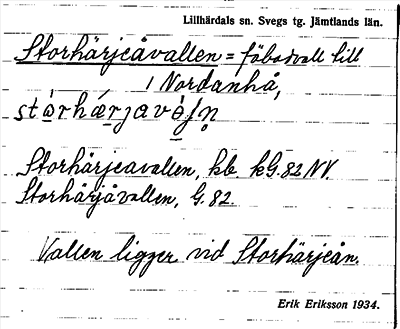 Lillhärdals sn. Svegs tg. Jämtlands län.
Storhärjeåvallen = fäbodvall till
1 Nordanhå,
Storhärjeavallen, kb kG.82 NV.
Storhärjåvallen, G. 82.
Vallen ligger vid Storhärjeån.
Erik Eriksson 1934.